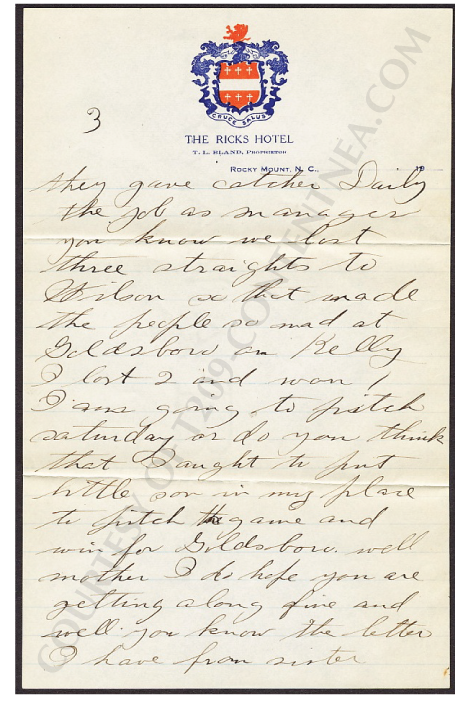 3
CRUCE SALUS
THE RICKS HOTEL
T. L. BLAND, PROPRIETOR
ROCKY MOUNT, N. C., 19
they gave catcher Daily
the job as manager
you know we lost
three straights to
Wilson so that made
the people so mad at
Goldsboro an Kelly
I lost 2 and won 1
I am going to pitch
saturday or do you think
that I aught to put
little son in my place
to pitch the game and
win for Goldsboro. well
mother I do hope you are
getting along fine and
well. you know the letter
I have from sister
COURTESY OF T209-CONTENTNEA.COM